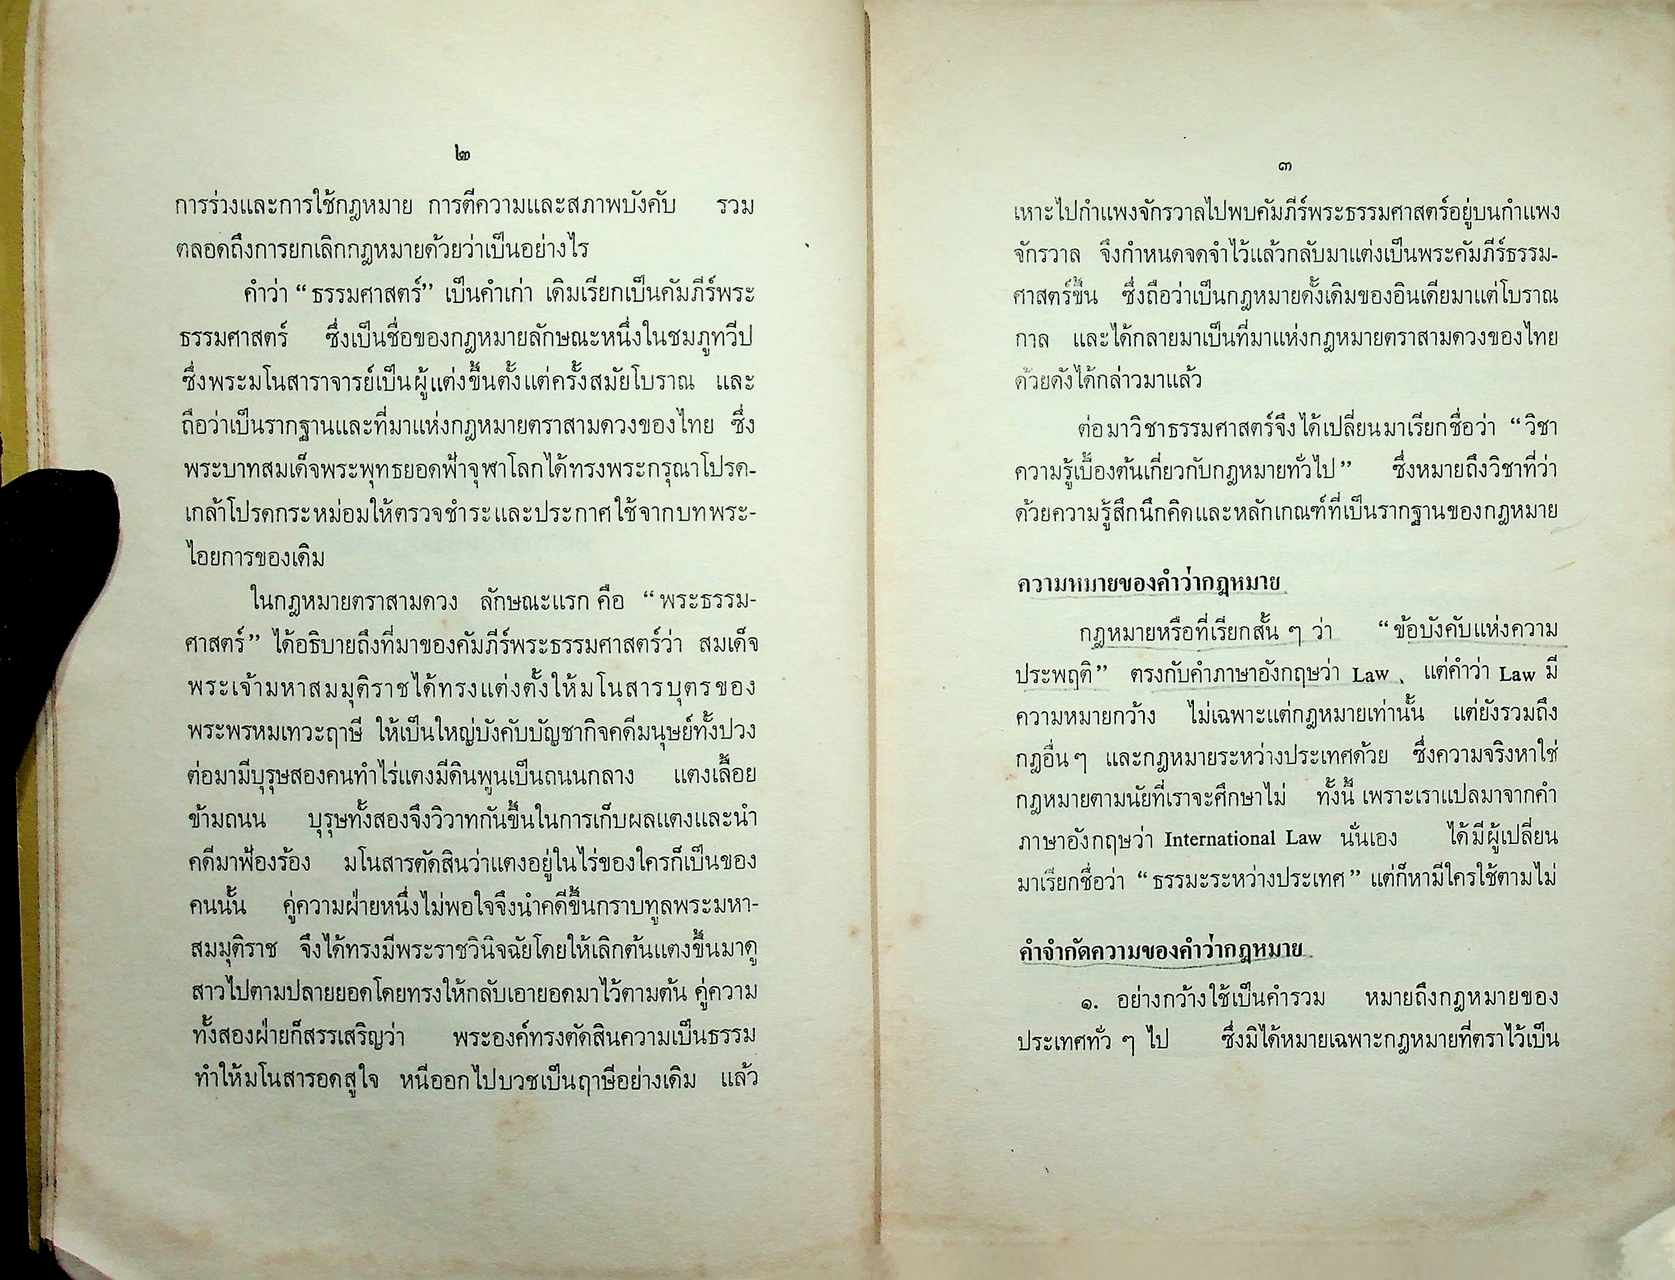 ๒
การร่วงและการใช้กฎหมาย การตีความและสภาพบังคับ รวม
ตลอดถึงการยกเลิกกฎหมายด้วยว่าเป็นอย่างไร
คำว่า “ธรรมศาสตร์” เป็นคำเก่า เดิมเรียกเป็นคัมภีร์พระ
ธรรมศาสตร์ ซึ่งเป็นชื่อของกฎหมายลักษณะหนึ่งในชมภูทวีป
ซึ่งพระมโนสาราจารย์เป็นผู้แต่งขึ้นตั้งแต่ครั้งสมัยโบราณ และ
ถือว่าเป็นรากฐานและที่มาแห่งกฎหมายตราสามดวงของไทย ซึ่ง
พระบาทสมเด็จพระพุทธยอดฟ้าจุฬาโลกได้ทรงพระกรุณาโปรด-
เกล้าโปรดกระหม่อมให้ตรวจชำระและประกาศใช้จากบทพระ-
ไอยการของเดิม
ในกฎหมายตราสามดวง ลักษณะแรก คือ “พระธรรม-
ศาสตร์” ได้อธิบายถึงที่มาของคัมภีร์พระธรรมศาสตร์ว่า สมเด็จ
พระเจ้ามหาสมมุติราชได้ทรงแต่งตั้งให้มโนสารบุตรของ
พระพรหมเทวะฤาษี ให้เป็นใหญ่บังคับบัญชากิจคดีมนุษย์ทั้งปวง
ต่อมามีบุรุษสองคนทำไร่แตงมีดินพูนเป็นถนนกลาง แตงเลื้อย
ข้ามถนน บุรุษทั้งสองจึงวิวาทกันขึ้นในการเก็บผลแตงและนำ
คดีมาฟ้องร้อง มโนสารตัดสินว่าแตงอยู่ในไร่ของใครก็เป็นของ
คนนั้น คู่ความฝ่ายหนึ่งไม่พอใจจึงนำคดีขึ้นกราบทูลพระมหา-
สมมุติราช จึงได้ทรงมีพระราชวินิจฉัยโดยให้เลิกต้นแตงขึ้นมาดู
สาวไปตามปลายยอดโดยทรงให้กลับเอายอดมาไว้ตามต้น คู่ความ
ทั้งสองฝ่ายก็สรรเสริญว่า พระองค์ทรงตัดสินความเป็นธรรม
ทำให้มโนสารอดสูใจ หนีออกไปบวชเป็นฤาษีอย่างเดิม แล้ว
๓
เหาะไปกำแพงจักรวาลไปพบคัมภีร์พระธรรมศาสตร์อยู่บนกำแพง
จักรวาล จึงกำหนดจดจำไว้แล้วกลับมาแต่งเป็นพระคัมภีร์ธรรม-
ศาสตร์ขึ้น ซึ่งถือว่าเป็นกฎหมายดั้งเดิมของอินเดียมาแต่โบราณ
กาล และได้กลายมาเป็นที่มาแห่งกฎหมายตราสามดวงของไทย
ด้วยดังได้กล่าวมาแล้ว
ต่อมาวิชาธรรมศาสตร์จึงได้เปลี่ยนมาเรียกชื่อว่า “วิชา
ความรู้เบื้องต้นเกี่ยวกับกฎหมายทั่วไป” ซึ่งหมายถึงวิชาที่ว่า
ด้วยความรู้สึกนึกคิดและหลักเกณฑ์ที่เป็นรากฐานของกฎหมาย
ความหมายของคำว่ากฎหมาย
กฎหมายหรือที่เรียกสั้น ๆ ว่า “ข้อบังคับแห่งความ
ประพฤติ” ตรงกับคำภาษาอังกฤษว่า Law แต่คำว่า Law มี
ความหมายกว้าง ไม่เฉพาะแต่กฎหมายเท่านั้น แต่ยังรวมถึง
กฎอื่นๆ และกฎหมายระหว่างประเทศด้วย ซึ่งความจริงหาใช่
กฎหมายตามนัยที่เราจะศึกษาไม่ ทั้งนี้ เพราะเราแปลมาจากคำ
ภาษาอังกฤษว่า International Law นั่นเอง ได้มีผู้เปลี่ยน
มาเรียกชื่อว่า “ธรรมะระหว่างประเทศ” แต่ก็หามีใครใช้ตามไม่
คำจำกัดความของคำว่ากฎหมาย
๑. อย่างกว้างใช้เป็นคำรวม หมายถึงกฎหมายของ
ประเทศทั่ว ๆ ไป ซึ่งมิได้หมายเฉพาะกฎหมายที่ตราไว้เป็น